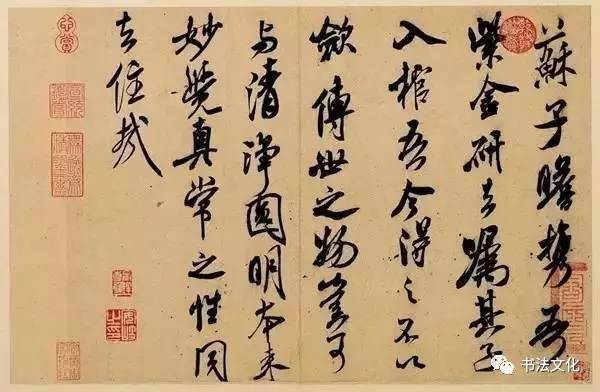 蘇子瞻携吾
紫金研去嘱其子
入棺吾今得之不以
斂傳世之物豈可
与清淨圓明本来
妙覺真常之性同
去住哉
书法文化